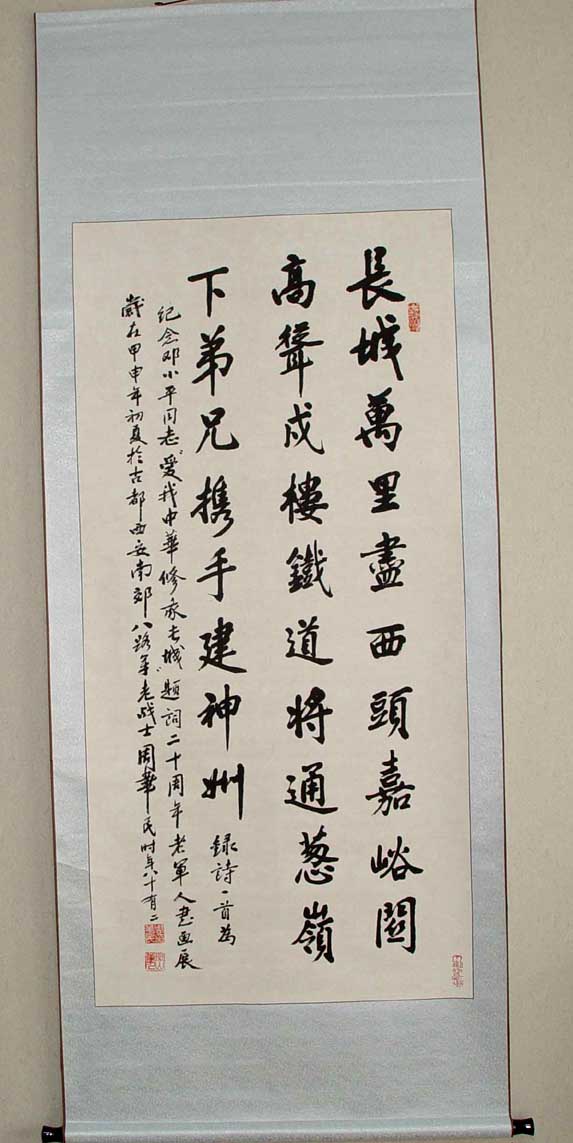 長城萬里盡西頭嘉峪關
高聳戍樓鐵道將通葱嶺
下弟兄携手建神州 録詩一首為
纪念邓小平同志“愛我中華修我长城”題詞二十周年老軍人书画展
歲在甲申年初夏於古都西安南郊八路军老战士周華民时年八十有二